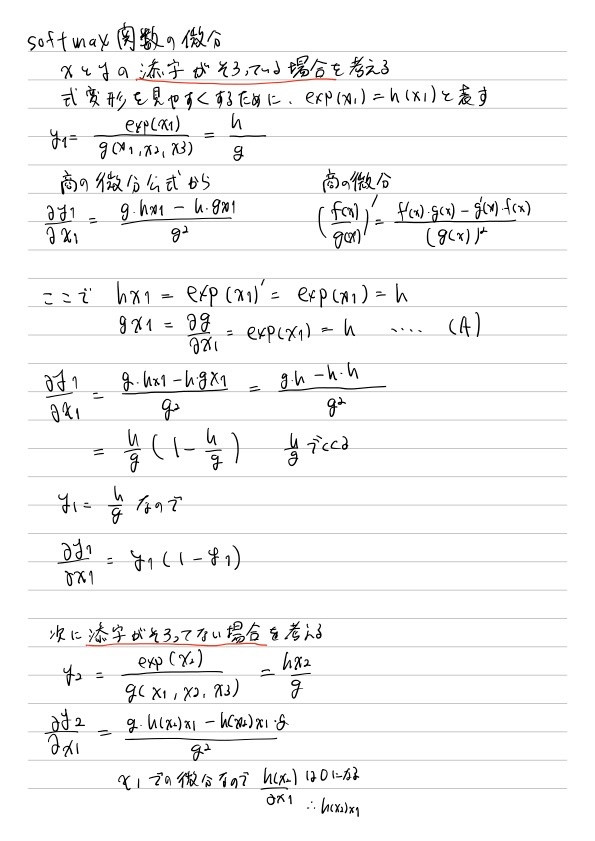 softmax 関数の微分
xとyの添字がそろっている場合を考える
式変形を見やすくするために、exp(x1) = h(x1)と表す
y1 = exp(x1) / g(x1, x2, x3) = h / g
商の微分公式から 商の微分
∂y1/∂x1 = (g・hx1 − h・gx1) / g² (f(x)/g(x))′ = (f′(x)・g(x) − g′(x)・f(x)) / (g(x))²
ここで hx1 = exp(x1)′ = exp(x1) = h
gx1 = ∂g/∂x1 = exp(x1) = h ‥‥ (A)
∂y1/∂x1 = (g・hx1 − h・gx1) / g² = (g・h − h・h) / g²
= h/g (1 − h/g) h/gでくくる
y1 = h/g なので
∂y1/∂x1 = y1(1 − y1)
次に添字がそろってない場合を考える
y2 = exp(x2) / g(x1, x2, x3) = hx2 / g
∂y2/∂x1 = (g・h(x2)x1 − h(x2)x1・g) / g²
x1での微分なので h(x2)/∂x1 は0になる
∴ h(x2)x1